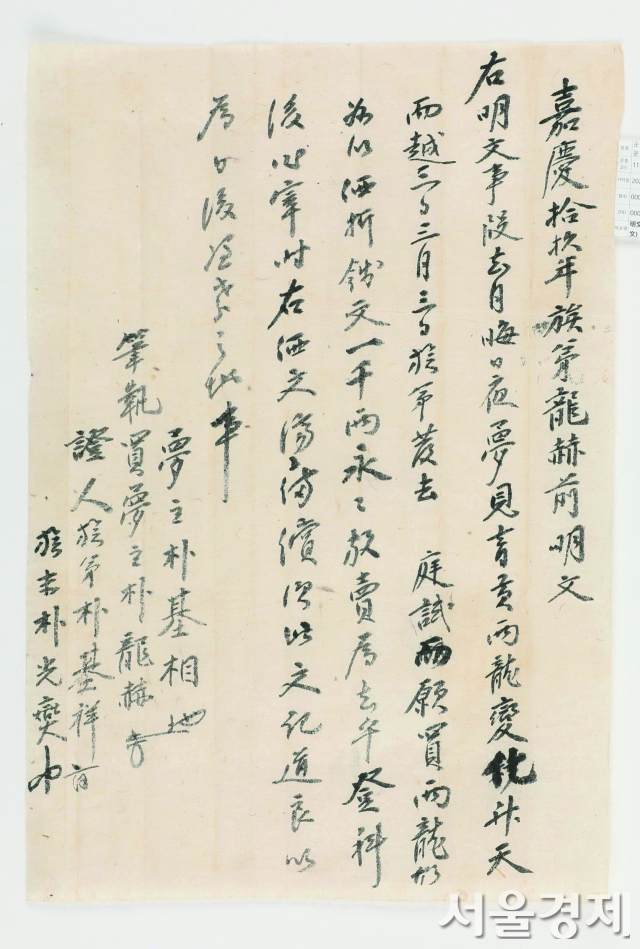 嘉慶拾玖年族弟龍赫前明文
右明文事段去月晦日夜夢見靑黃兩龍變化升天
而越三日三月三日族弟發去 庭試而願買兩龍
価折錢文一千兩永〻放賣爲去乎登科
後 時右価文 備償次此文記導良以
爲日後憑考之地事
夢主朴基相
筆執買夢主朴龍赫
證人族弟朴基祥
族末朴光燮
서울경제